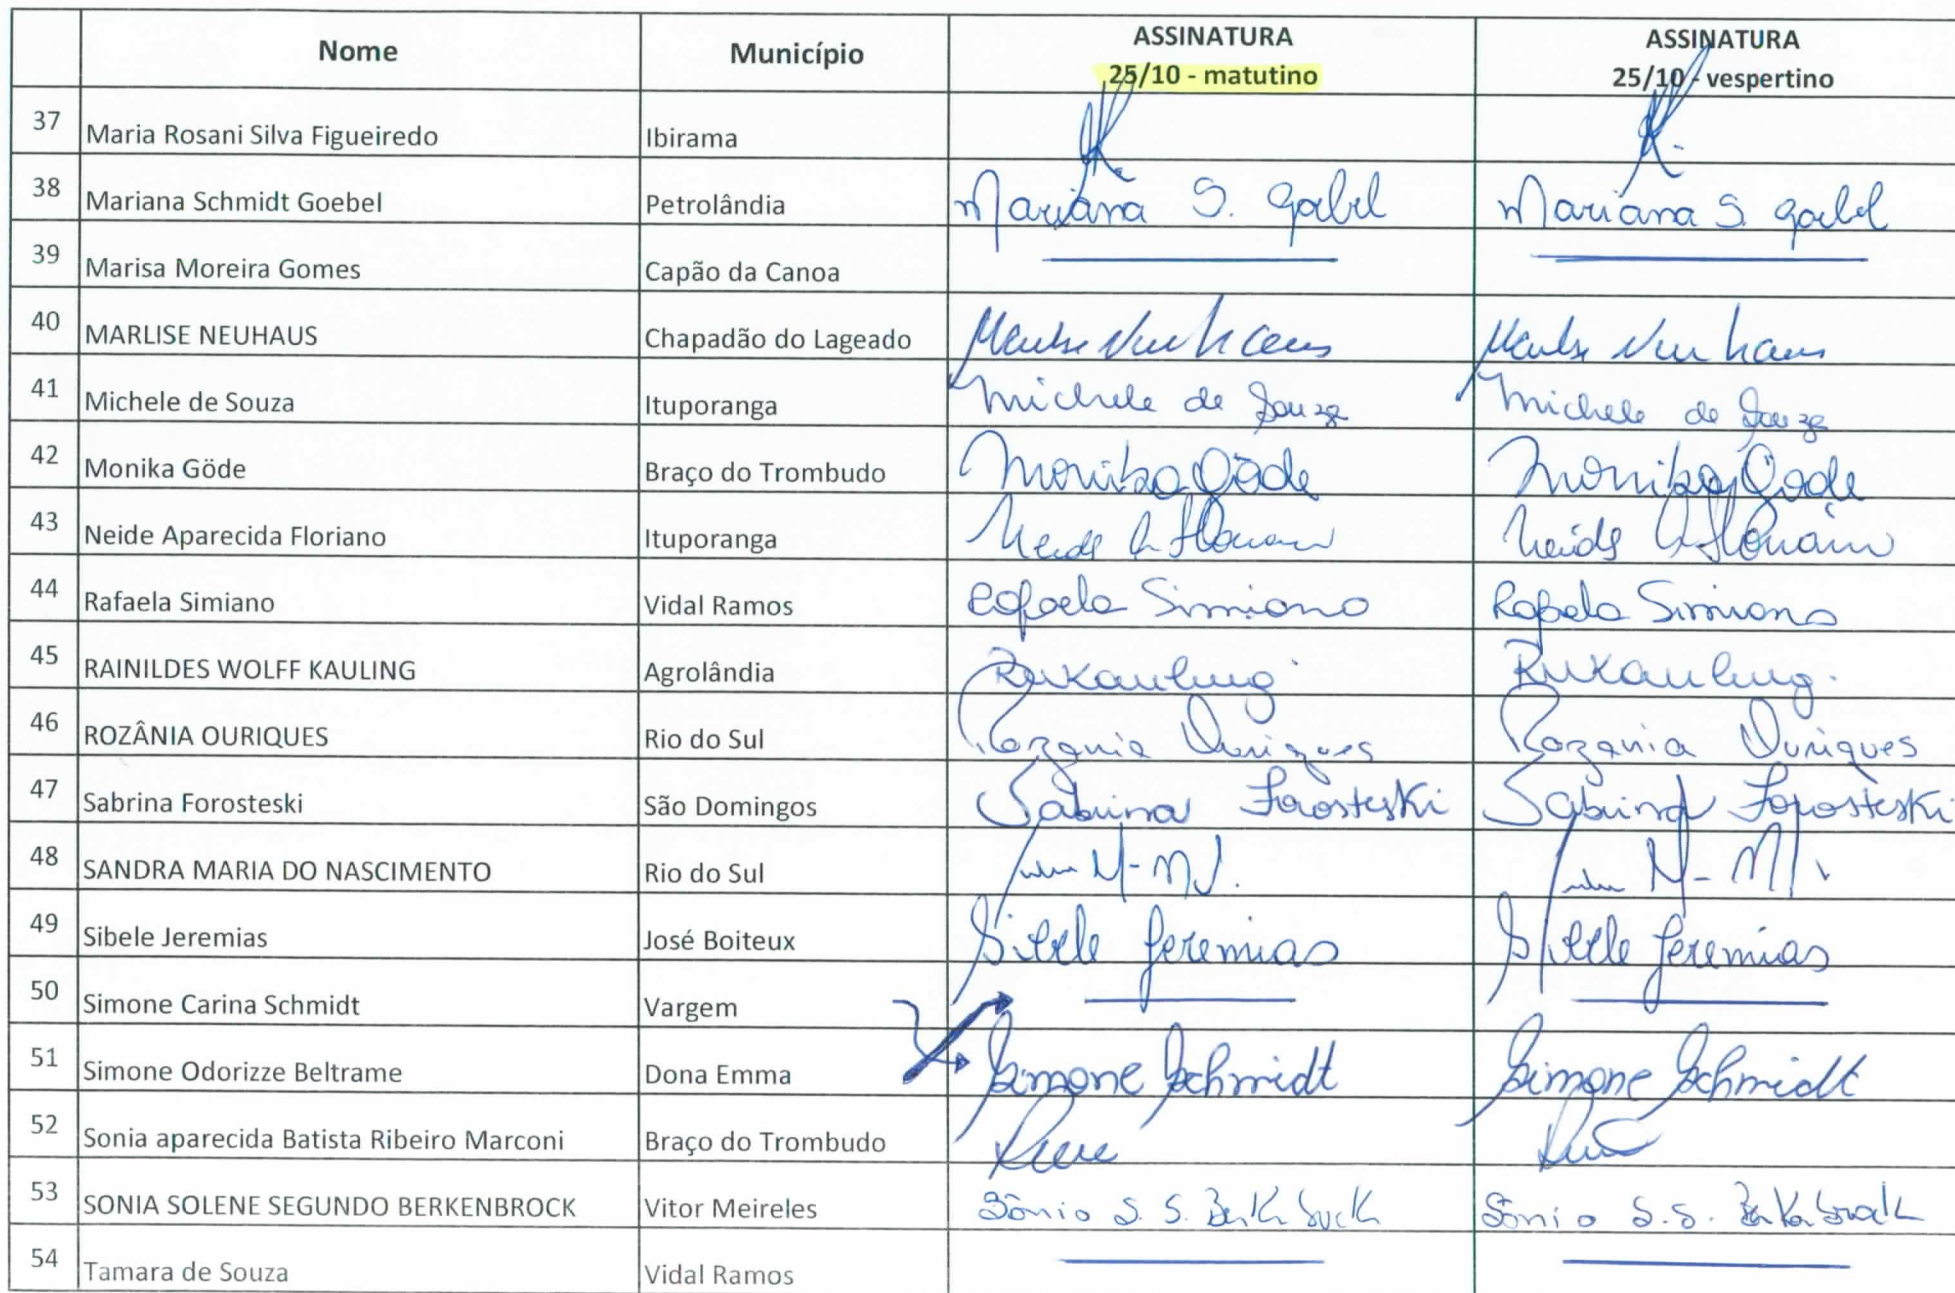 Nome Município ASSINATURA 25/10 - matutino ASSINATURA 25/10 - vespertino
37 Maria Rosani Silva Figueiredo Ibirama
38 Mariana Schmidt Goebel Petrolândia Mariana S. Goebel Mariana S. Goebel
39 Marisa Moreira Gomes Capão da Canoa
40 MARLISE NEUHAUS Chapadão do Lageado Marlise Neuhaus Marlise Neuhaus
41 Michele de Souza Ituporanga Michele de Souza Michele de Souza
42 Monika Göde Braço do Trombudo Monika Göde Monika Göde
43 Neide Aparecida Floriano Ituporanga Neide A. Floriano Neide A Floriano
44 Rafaela Simiano Vidal Ramos Rafaela Simiano Rafaela Simiano
45 RAINILDES WOLFF KAULING Agrolândia RWKauling RWKauling.
46 ROZÂNIA OURIQUES Rio do Sul Rozania Ouriques Rozania Ouriques
47 Sabrina Forosteski São Domingos Sabrina Forosteski Sabrina Forosteski
48 SANDRA MARIA DO NASCIMENTO Rio do Sul
49 Sibele Jeremias José Boiteux Sibele Jeremias Sibele Jeremias
50 Simone Carina Schmidt Vargem
51 Simone Odorizze Beltrame Dona Emma Simone Schmidt Simone Schmidt
52 Sonia aparecida Batista Ribeiro Marconi Braço do Trombudo
53 SONIA SOLENE SEGUNDO BERKENBROCK Vitor Meireles Sônia S. S. Berkenbrock Sônia S.S. Berkenbrock
54 Tamara de Souza Vidal Ramos